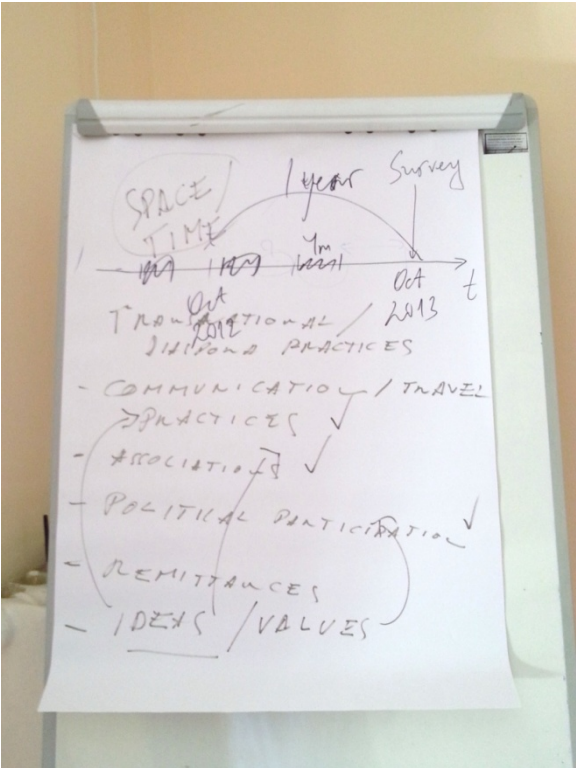 SPACE/
TIME
1 year
Survey
4m
Oct
2012
Oct
2013
t
TRANSNATIONAL /
DIASPORA PRACTICES
- COMMUNICATION / TRAVEL
PRACTICES ✓
- ASSOCIATIONS ✓
- POLITICAL PARTICIPATION ✓
- REMITTANCES
- IDEAS / VALUES